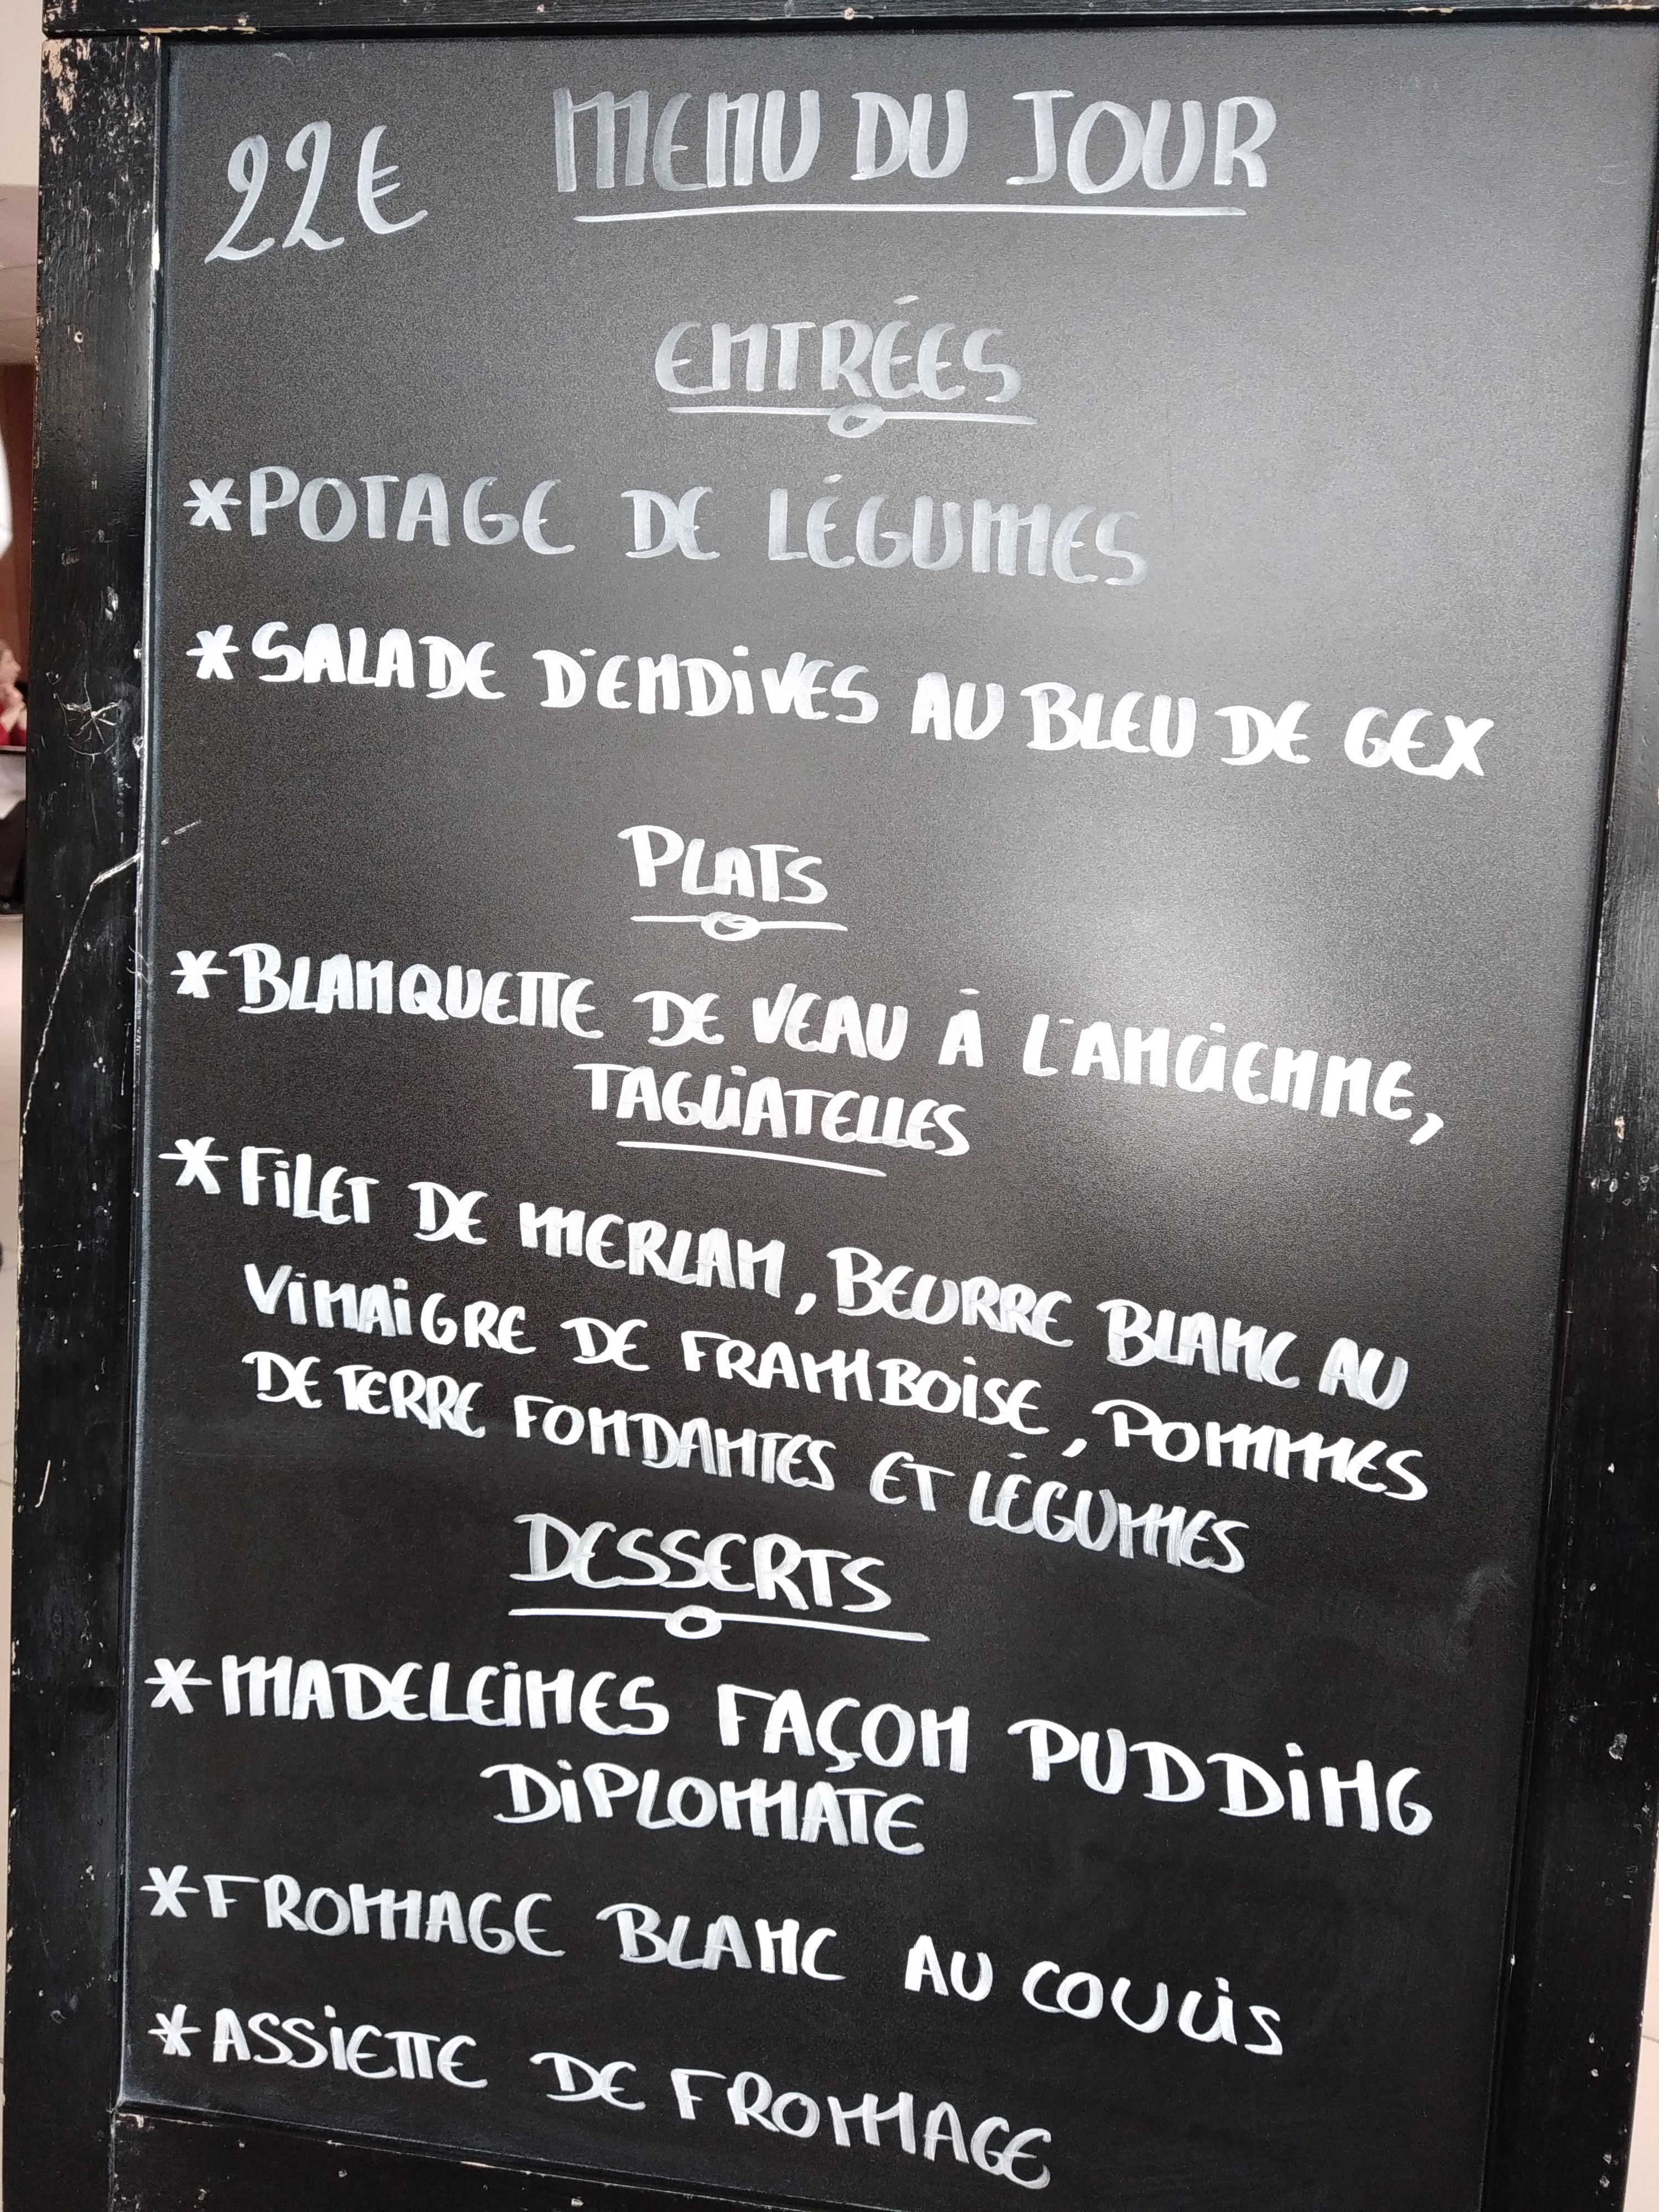 22€ MENU DU JOUR
ENTRÉES
*POTAGE DE LÉGUMES
*SALADE D'ENDIVES AU BLEU DE GEX
PLATS
*BLANQUETTE DE VEAU À L'ANCIENNE,
TAGLIATELLES
*FILET DE MERLAN, BEURRE BLANC AU
VINAIGRE DE FRAMBOISE, POMMES
DE TERRE FONDANTES ET LÉGUMES
DESSERTS
*MADELEINES FAÇON PUDDING
DIPLOMATE
*FROMAGE BLANC AU COULIS
*ASSIETTE DE FROMAGE